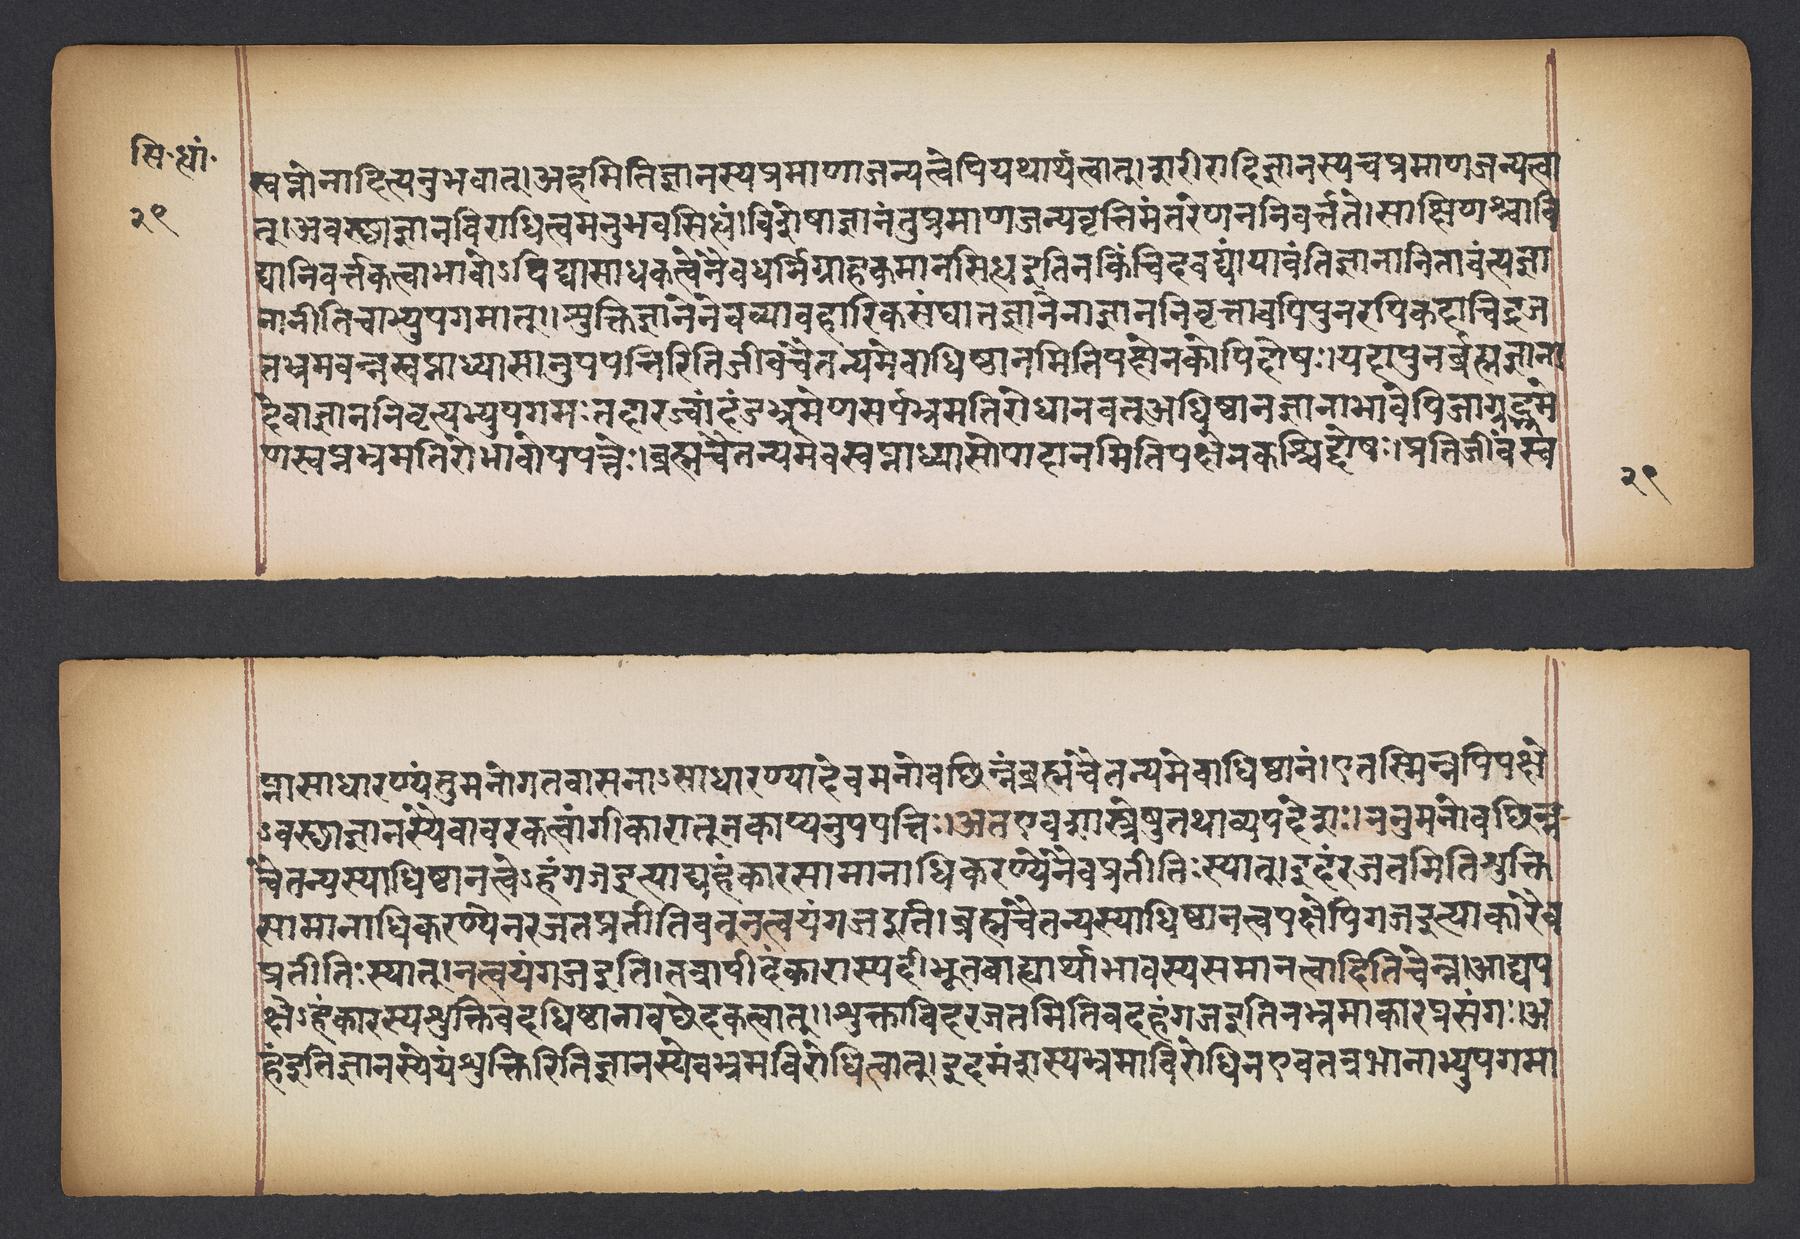 सि॰ध्यां॰
२९
स्वप्नोनादित्यनुभवात्।अहमितिज्ञानस्यप्रमाणाजन्यत्वेपियथार्थत्वात्।शरीरादिज्ञानस्यचप्रमाणजन्यत्वा
त्।अवस्छाज्ञानविराधित्वमनुभवसिध्धं।विशेषाज्ञानंतुप्रमाणजन्यवृत्तिमंतरेणननिवर्त्तते।साक्षिणश्चावि
द्यानिवर्त्तकत्वाभावोऽविद्यासाधकत्वेनैवधर्मिग्राहकमानसिध्धइतिनकिंचिदवद्यं।यावंतिज्ञानानितावंत्यज्ञा
नानीतिचाभ्युपगमात्।।शुक्तिज्ञानेनेवव्यावहारिकसंघातज्ञानेनाज्ञाननिवृत्तावपिपुनरपिकदाचिद्रज
तभ्रमवन्नस्वप्नाध्यासानुपपत्तिरितिजीवचैतन्यमेवाधिष्ठानमितिपक्षेनकोपिदोषः।यदापुनर्ब्रह्मज्ञाना
देवाज्ञाननिवृत्यभ्युपगमःतदारज्वांदंडभ्रमेणसर्पभ्रमतिरोधानवत्अधिष्ठानज्ञानाभावेपिजाग्रद्भ्रमे
णस्वप्नभ्रमतिरोभावोपपत्तेः।ब्रह्मचैतन्यमेवस्वप्नाध्यासोपादानमितिपक्षेनकश्चिद्दोषः।प्रतिजीवंस्व
२९
प्नासाधारण्यंतुमनोगतवासनाऽसाधारण्यादेवमनोवछिन्नंब्रह्मचैतन्यमेवाधिष्ठानं।एतस्मिन्नपिपक्षे
ऽवस्छाज्ञानस्येवावरकत्वांगीकारात्नकाप्यनुपपत्तिः।अतएवशास्त्रेषुतथाव्यपदेशः।ननुमनोवछिन्न
चैतन्यस्याधिष्ठानत्वेऽहंगजइत्याद्यहंकारसामानाधिकरण्येनैवप्रतीतिःस्यात्।इदंरजतमितिशुक्ति
सामानाधिकरण्येनरजतप्रतीतिवत्नत्वयंगजइति।ब्रह्मचैतन्यस्याधिष्ठानत्वपक्षेपिगजइत्याकारैव
प्रतीतिःस्यात्।नत्वयंगजइति।तत्रापीदंकारास्पदीभूतबाह्यार्थाभावस्यसमानत्वादितिचेन्न।आद्यप
क्षेऽहंकारस्यशुक्तिवदधिष्ठानावछेदकत्वात्।।शुक्ताविदरजतमितिवदहंगजइतिनभ्रमाकारप्रसंगः।अ
हंइतिज्ञानस्येयंशुक्तिरितिज्ञानस्येवभ्रमविरोधित्वात्।इदमंशस्यभ्रमाविरोधिनएवतत्रभानाभ्युपगमा